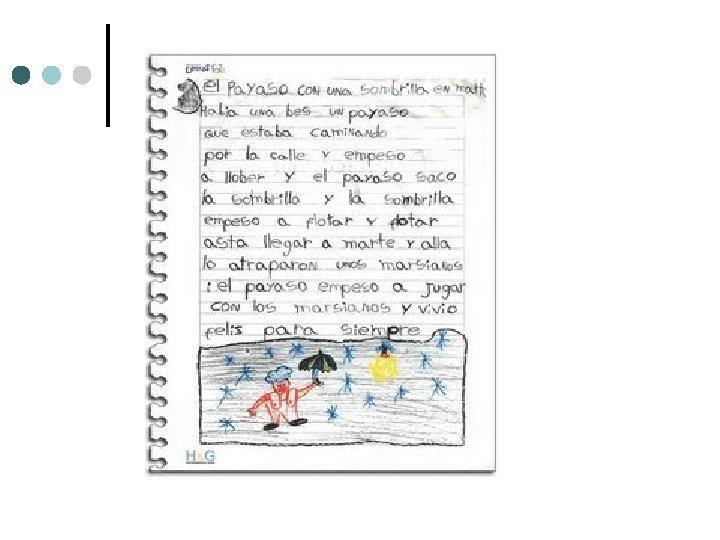 el Payaso CON UNA sombrilla EN matt
Habia UNA bes UN payaso
QUE estaba caminando
por la calle Y empeso
a llober Y el payaso saco
la sombrilla Y la sombrilla
empeso a flotar Y flotar
asta llegar a marte Y alla
lo atraparon unos marsianos
i el payaso empeso a Jugar
CON los marsianos Y vivio
felis para siempre
H&G